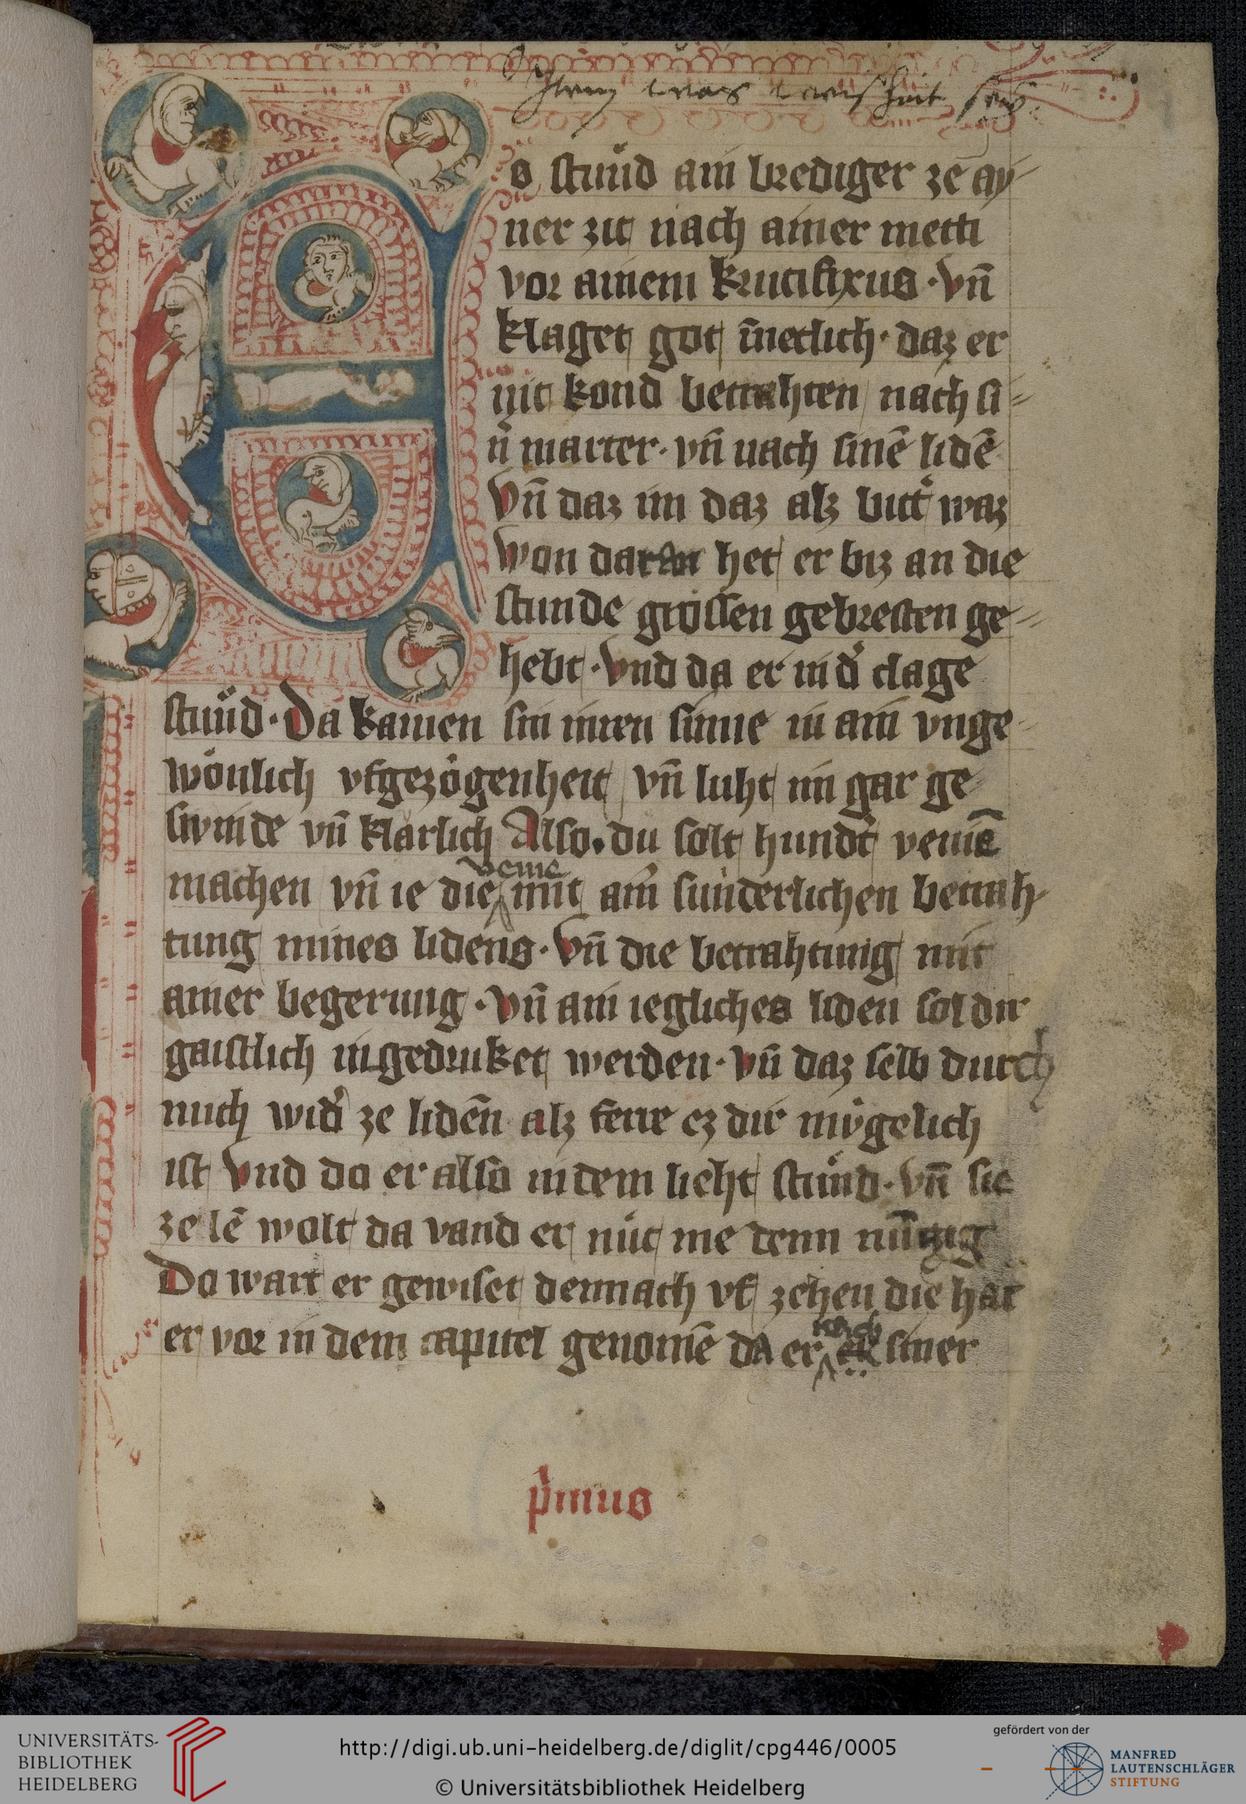 waz weisheit sey
o stuͦnd ain brediger ze ay
ner zit nach ainer metti
vor ainem krucifixus · vn̄
klaget got īnetlich · daz er
nit kond betrahten nach si
nˀ marter · vn̄ nach sinē lidē
Vn̄ daz im daz alz bittˀ waz
won daran het er biz an die
stunde grossen gebresten ge
hebt · Vnd da er in dˀ clage
stuͦnd · Da kamen sin inren sinne in ain vnge
woͤnlich vfgezogenheit vn̄ luht im gar ge
swinde vn̄ klarlich Also · du solt hundˀt venīe
machen vn̄ ie die venie mit ainˀ sunderlichen betrah
tung mines lidens · Vn̄ die betrahtung mit
ainer begerung · Vn̄ ain iegliches liden sol dir
gaistlich ingedruket werden · Vn̄ daz selb durch
mich widˀ ze lidēn alz ferre ez dir mugelich
ist Vnd do er also in dem lieht stuͦnd · Vn̄ sie
zelē wolt da vand er nut me denn nun̄gig
Do wart er gewiset dennach vf zehen die hat
er vor in dem capitel genomē da er nach siner
pˀmus
UNIVERSITÄTS-
BIBLIOTHEK
HEIDELBERG
http://digi.ub.uni-heidelberg.de/diglit/cpg446/0005
© Universitätsbibliothek Heidelberg
gefördert von der
MANFRED
LAUTENSCHLÄGER
STIFTUNG